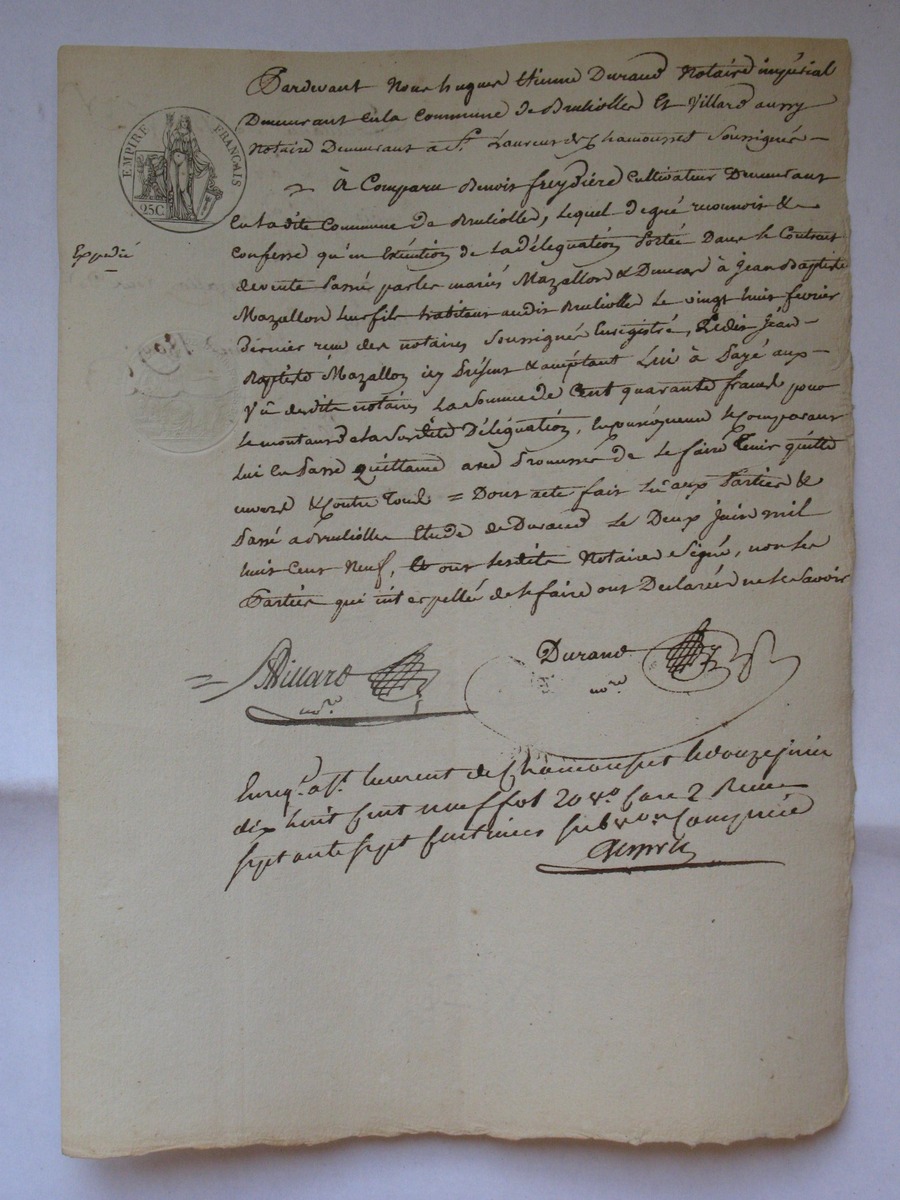 EMPIRE FRANÇAIS
25C
Pardevant Nous hugues Etienne Durand Notaire impérial
Demeurant en la Commune de Bruliolles Et Villard aussy
Notaire Demeurant a St. Laurent de Chamousset Soussignés =
= à Comparu Benoit freydière Cultivateur Demeurant
en la dite Commune de Bruliolles, lequel de gré reconnoit &
Expedié
confesse qu'en Exécution de la délégation Portée Dans le Contrat
de vente Passé par les mariés Mazallon & Durand à Jean Baptiste
Mazallon leur fils habitant audit Brulliolles le vingt huit fevrier
dernier reçu des notaires Soussignés Enregistré, Ledit Jean
Baptiste Mazallon icy Présent & acceptant Lui à Payé aux
Vu desdits notaires La Somme de Cent quarante francs pour
le montant de la Susdite Délégation, En conséquence le Comparant
lui en Passe Quittance avec Promesse de le faire Tenir quitte
envers & Contre Tous = Dont acte fait Lu aux Parties &
Passé a Brulliolles Etude de Durand Le Deux Juin mil
huit Cent Neuf, et ont lesdits Notaires Signé, non les
Parties qui interpellées de le faire ont Déclarées ne le Savoir
= Villard
nore.
Durand
nore
Enregé. a St. laurent de Chamousset le douze juin
dix huit cent neuf fol 20 vo. Case 2 Reçu
septante sept centimes subvon. Comprise